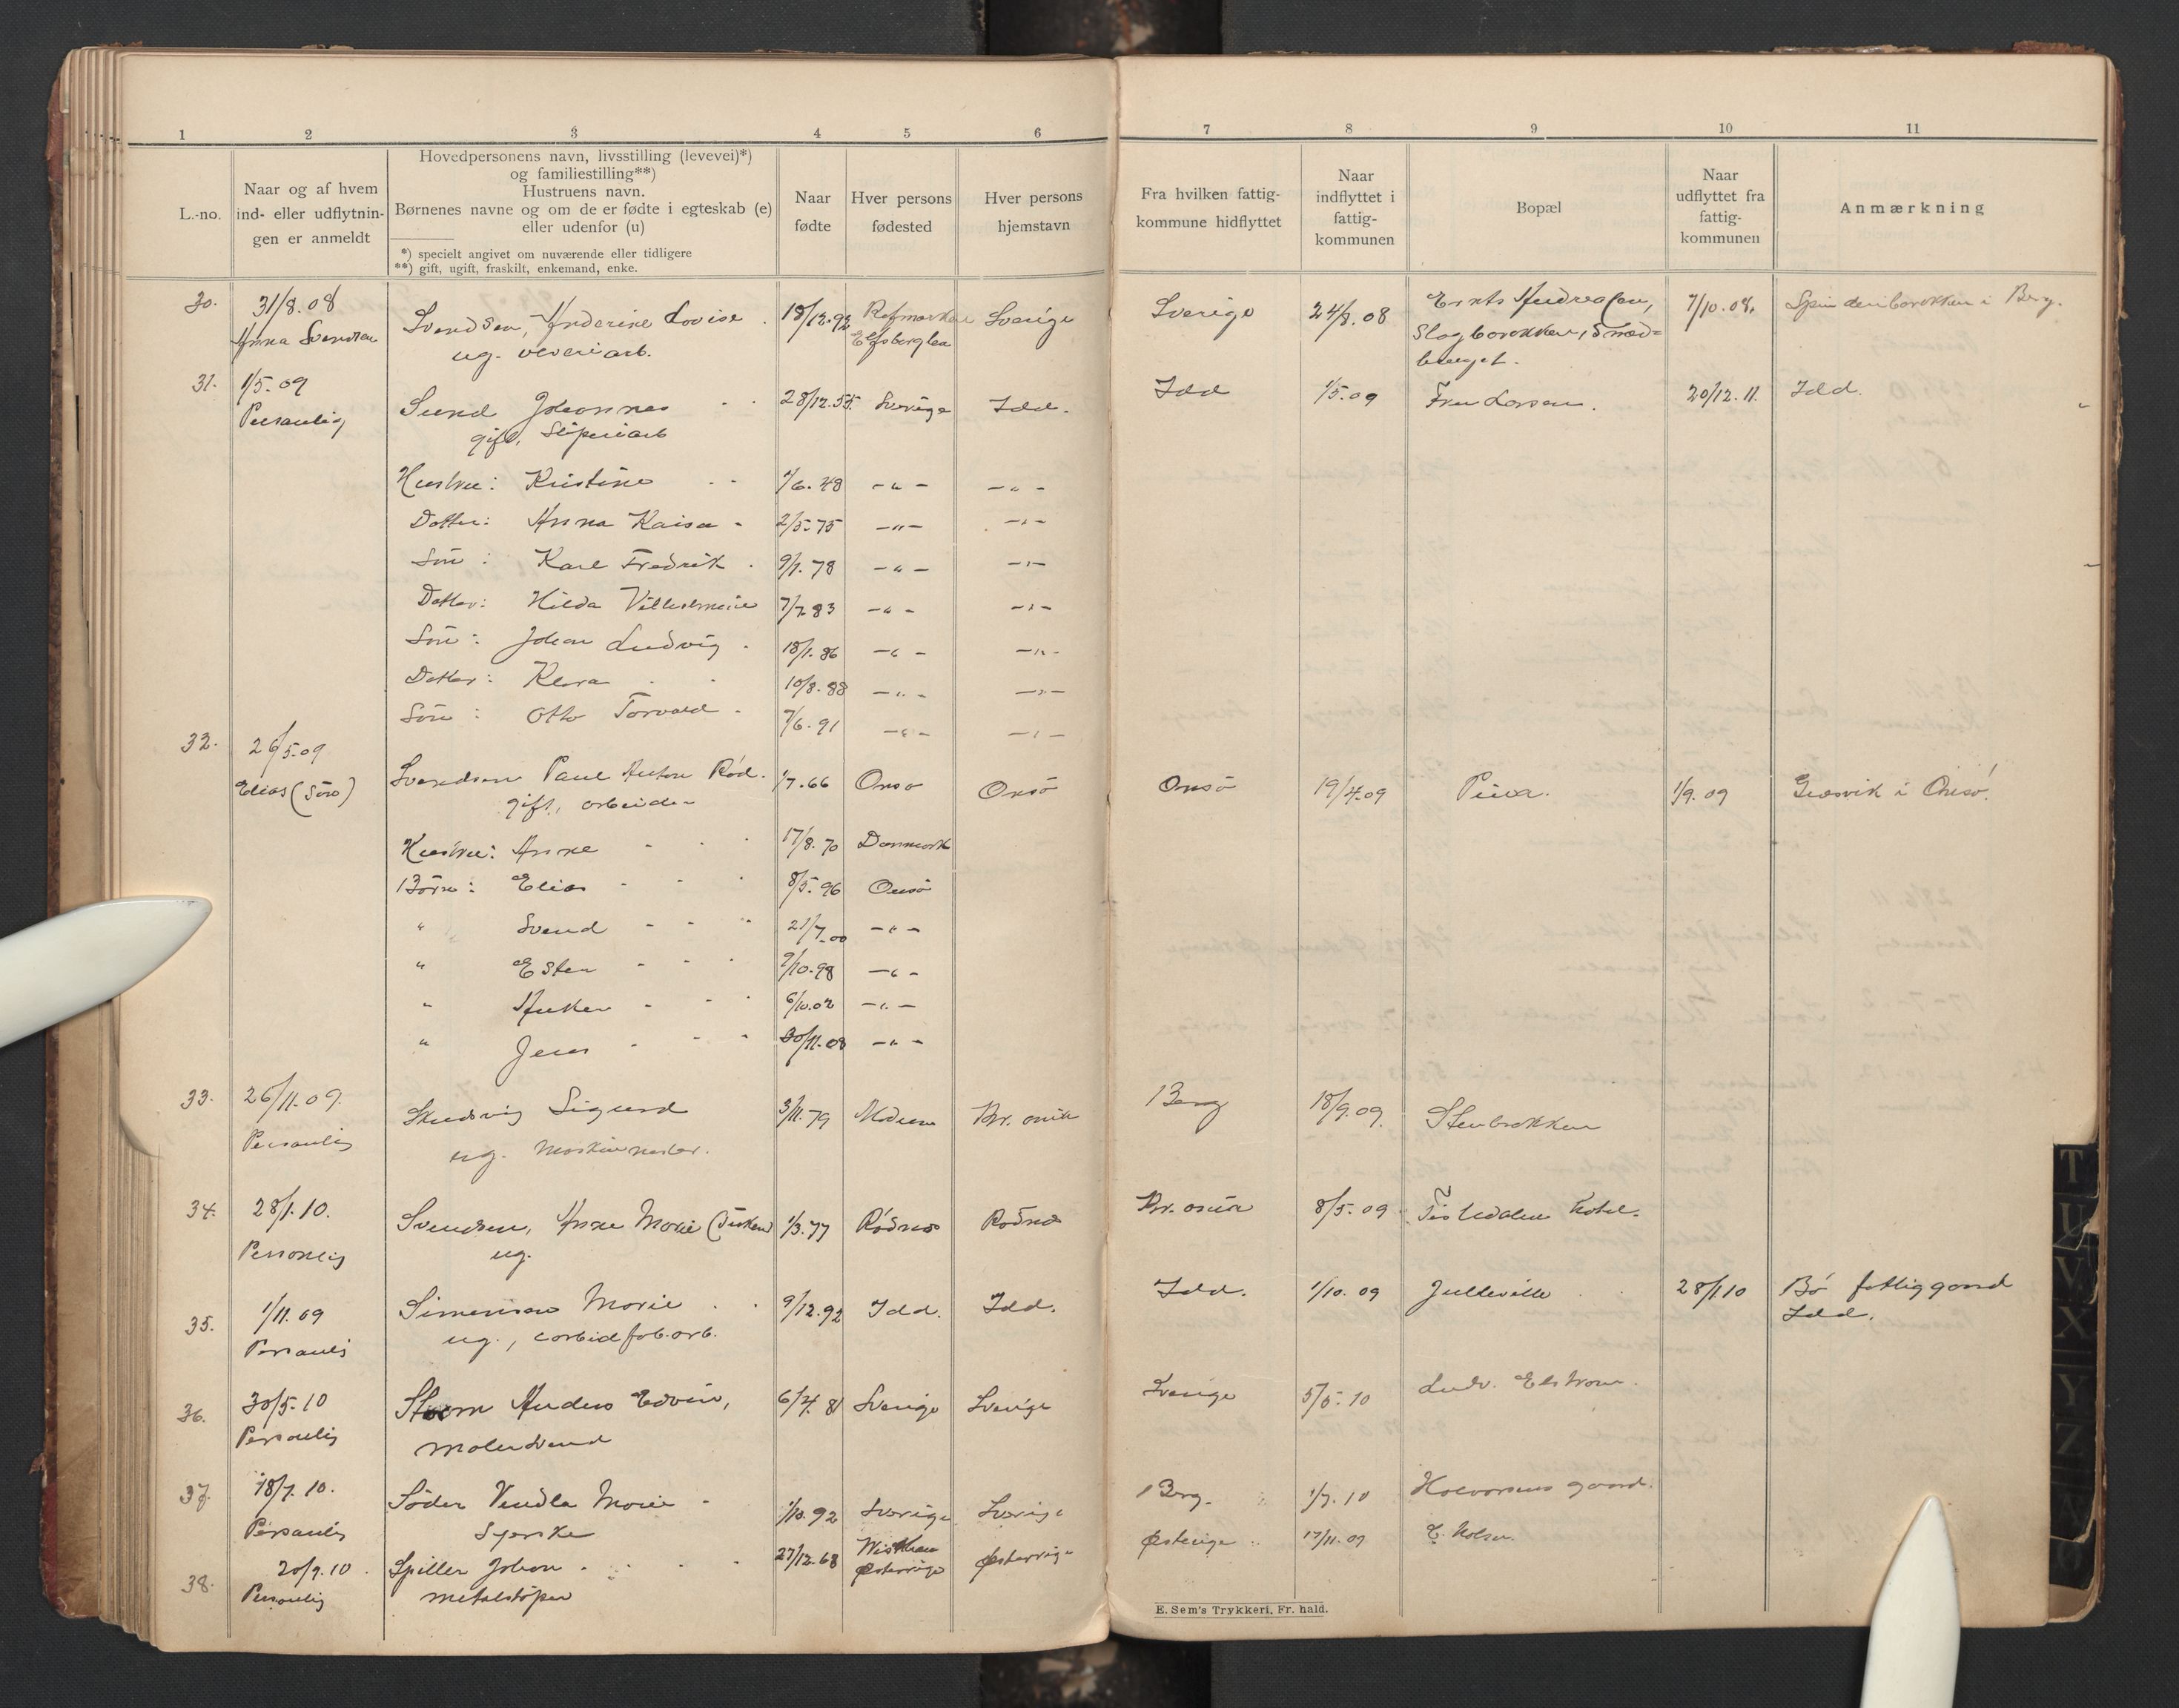 1 2 3 4 5 6 7 8 9 10 11
L.-no.
Naar og af hvem
ind- eller udflytnin-
gen er anmeldt
Hovedpersonens navn, livsstilling (levevei)*)
og familiestilling**)
Hustruens navn.
Børnenes navne og om de er fødte i egteskab (e)
eller udenfor (u)
*) specielt angivet om nuværende eller tidligere
**) gift, ugift, fraskilt, enkemand, enke.
Naar
fødte
Hver persons
fødested
Hver persons
hjemstavn
Fra hvilken fattig-
kommune hidflyttet
Naar
indflyttet i
fattig-
kommunen
Bopæl
Naar
udflyttet fra
fattig-
kommunen
Anmærkning
30. 31/8.08 Svendsen, Lovise 18/12.92 Sverige Sverige 24/8.08 7/10.08. i Berg.
Anna Svendsen ug. veveriarb.
31. 1/5.09 Sund Johannes 28/12.55. Sverige Idd. Idd 1/5.09 Fru Larsen. 20/12.11. Idd.
Personlig gift, Sliperiarb
Hustru: Kristine 1/6.48 -"- -"-
Datter: Anna Kaisa 2/5.75 -"- -"-
Søn: Karl Fredrik 9/1.78 -"- -"-
Datter: Hilda 7/7.83 -"- -"-
Søn: Johan Ludvig 18/1.86 -"- -"-
Datter: Klara 10/8.88 -"- -"-
Søn: Otto Torvald 7/6.91 -"- -"-
32. 26/5.09 Svendsen Paul Anton Rød. 1/7.66 Onsø Onsø Onsø 19/4.09 1/9.09 Græsvik i Onsø.
Elias (Søn) gift, arbeider
Hustru: Anne 17/8.70 Danmark
Børn: Elias 8/5.96 Onsø
" Svend 21/7.00 -"-
" Ester 2/10.98 -"-
" Anker 6/10.02 -"-
" Jens 30/11.08 -"-
33. 26/11.09. Sigurd 3/11.79 Modum Kr.ania Berg 18/9.09. Stenbrækken
Personlig ug. Maskinmester.
34. 28/1.10. Svendsen, Anne Marie 1/3.77 Rødnes Rødnes Kr.ania 8/5.09 Tistedalens hotel.
Personlig ug.
35. 1/11.09 Simensen Marie 9/12.92 Idd. Idd. Idd. 1/10.09 28/1.10 Bø fattiggaard
Personlig ug., carbidfab.arb. Idd.
36. 30/5.10 Storm Anders Edvin, 6/4.81 Sverige Sverige Sverige 5/5.10 Ludv. Elstrøm.
Personlig Malersvend
37. 18/7.10. Söder Vendla Marie 1/10.92 Sverige Sverige Berg. 1/7.10 Halvorsens gaard.
Personlig Syerske
38. 20/9.10. Spiller Johan 27/12.68 Østerrige Østerrige Østerrige 17/11.09
Personlig metalstøper
E. Sem's Trykkeri, Fr. hald.
T
U
V
X
Y
Z
Æ
Ø